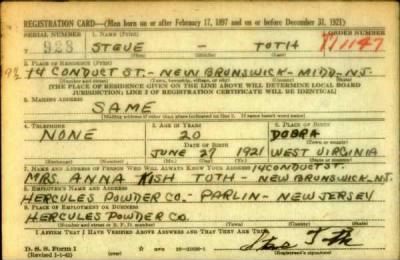 REGISTRATION CARD—(Men born on or after February 17, 1897 and on or before December 31, 1921)
SERIAL NUMBER 1. NAME (Print) ORDER NUMBER
928 STEVE — TOTH 11147
2. PLACE OF RESIDENCE (Print)
74 CONDUCT ST.- NEW BRUNSWICK - MIDD.-NJ.
[THE PLACE OF RESIDENCE GIVEN ON THE LINE ABOVE WILL DETERMINE LOCAL BOARD
JURISDICTION; LINE 2 OF REGISTRATION CERTIFICATE WILL BE IDENTICAL]
3. MAILING ADDRESS
SAME
[Mailing address if other than place indicated on line 2. If same insert word same]
4. TELEPHONE 5. AGE IN YEARS 6. PLACE OF BIRTH
NONE 20 DOBRA
DATE OF BIRTH
JUNE 27 1921 WEST VIRGINIA
(Exchange) (Number) (Mo.) (Day) (Yr.) (Town or county) (State or country)
7. NAME AND ADDRESS OF PERSON WHO WILL ALWAYS KNOW YOUR ADDRESS 74 CONDUCT ST.
MRS. ANNA KISH TOTH - NEW BRUNSWICK-NJ.
8. EMPLOYER'S NAME AND ADDRESS
HERCULES POWDER CO. - PARLIN - NEW JERSEY
9. PLACE OF EMPLOYMENT OR BUSINESS
HERCULES POWDER CO.
(Number and street or R. F. D. number) (Town) (County) (State)
I AFFIRM THAT I HAVE VERIFIED ABOVE ANSWERS AND THAT THEY ARE TRUE.
D. S. S. Form 1
(Revised 1-1-42) (over)
Steve Toth